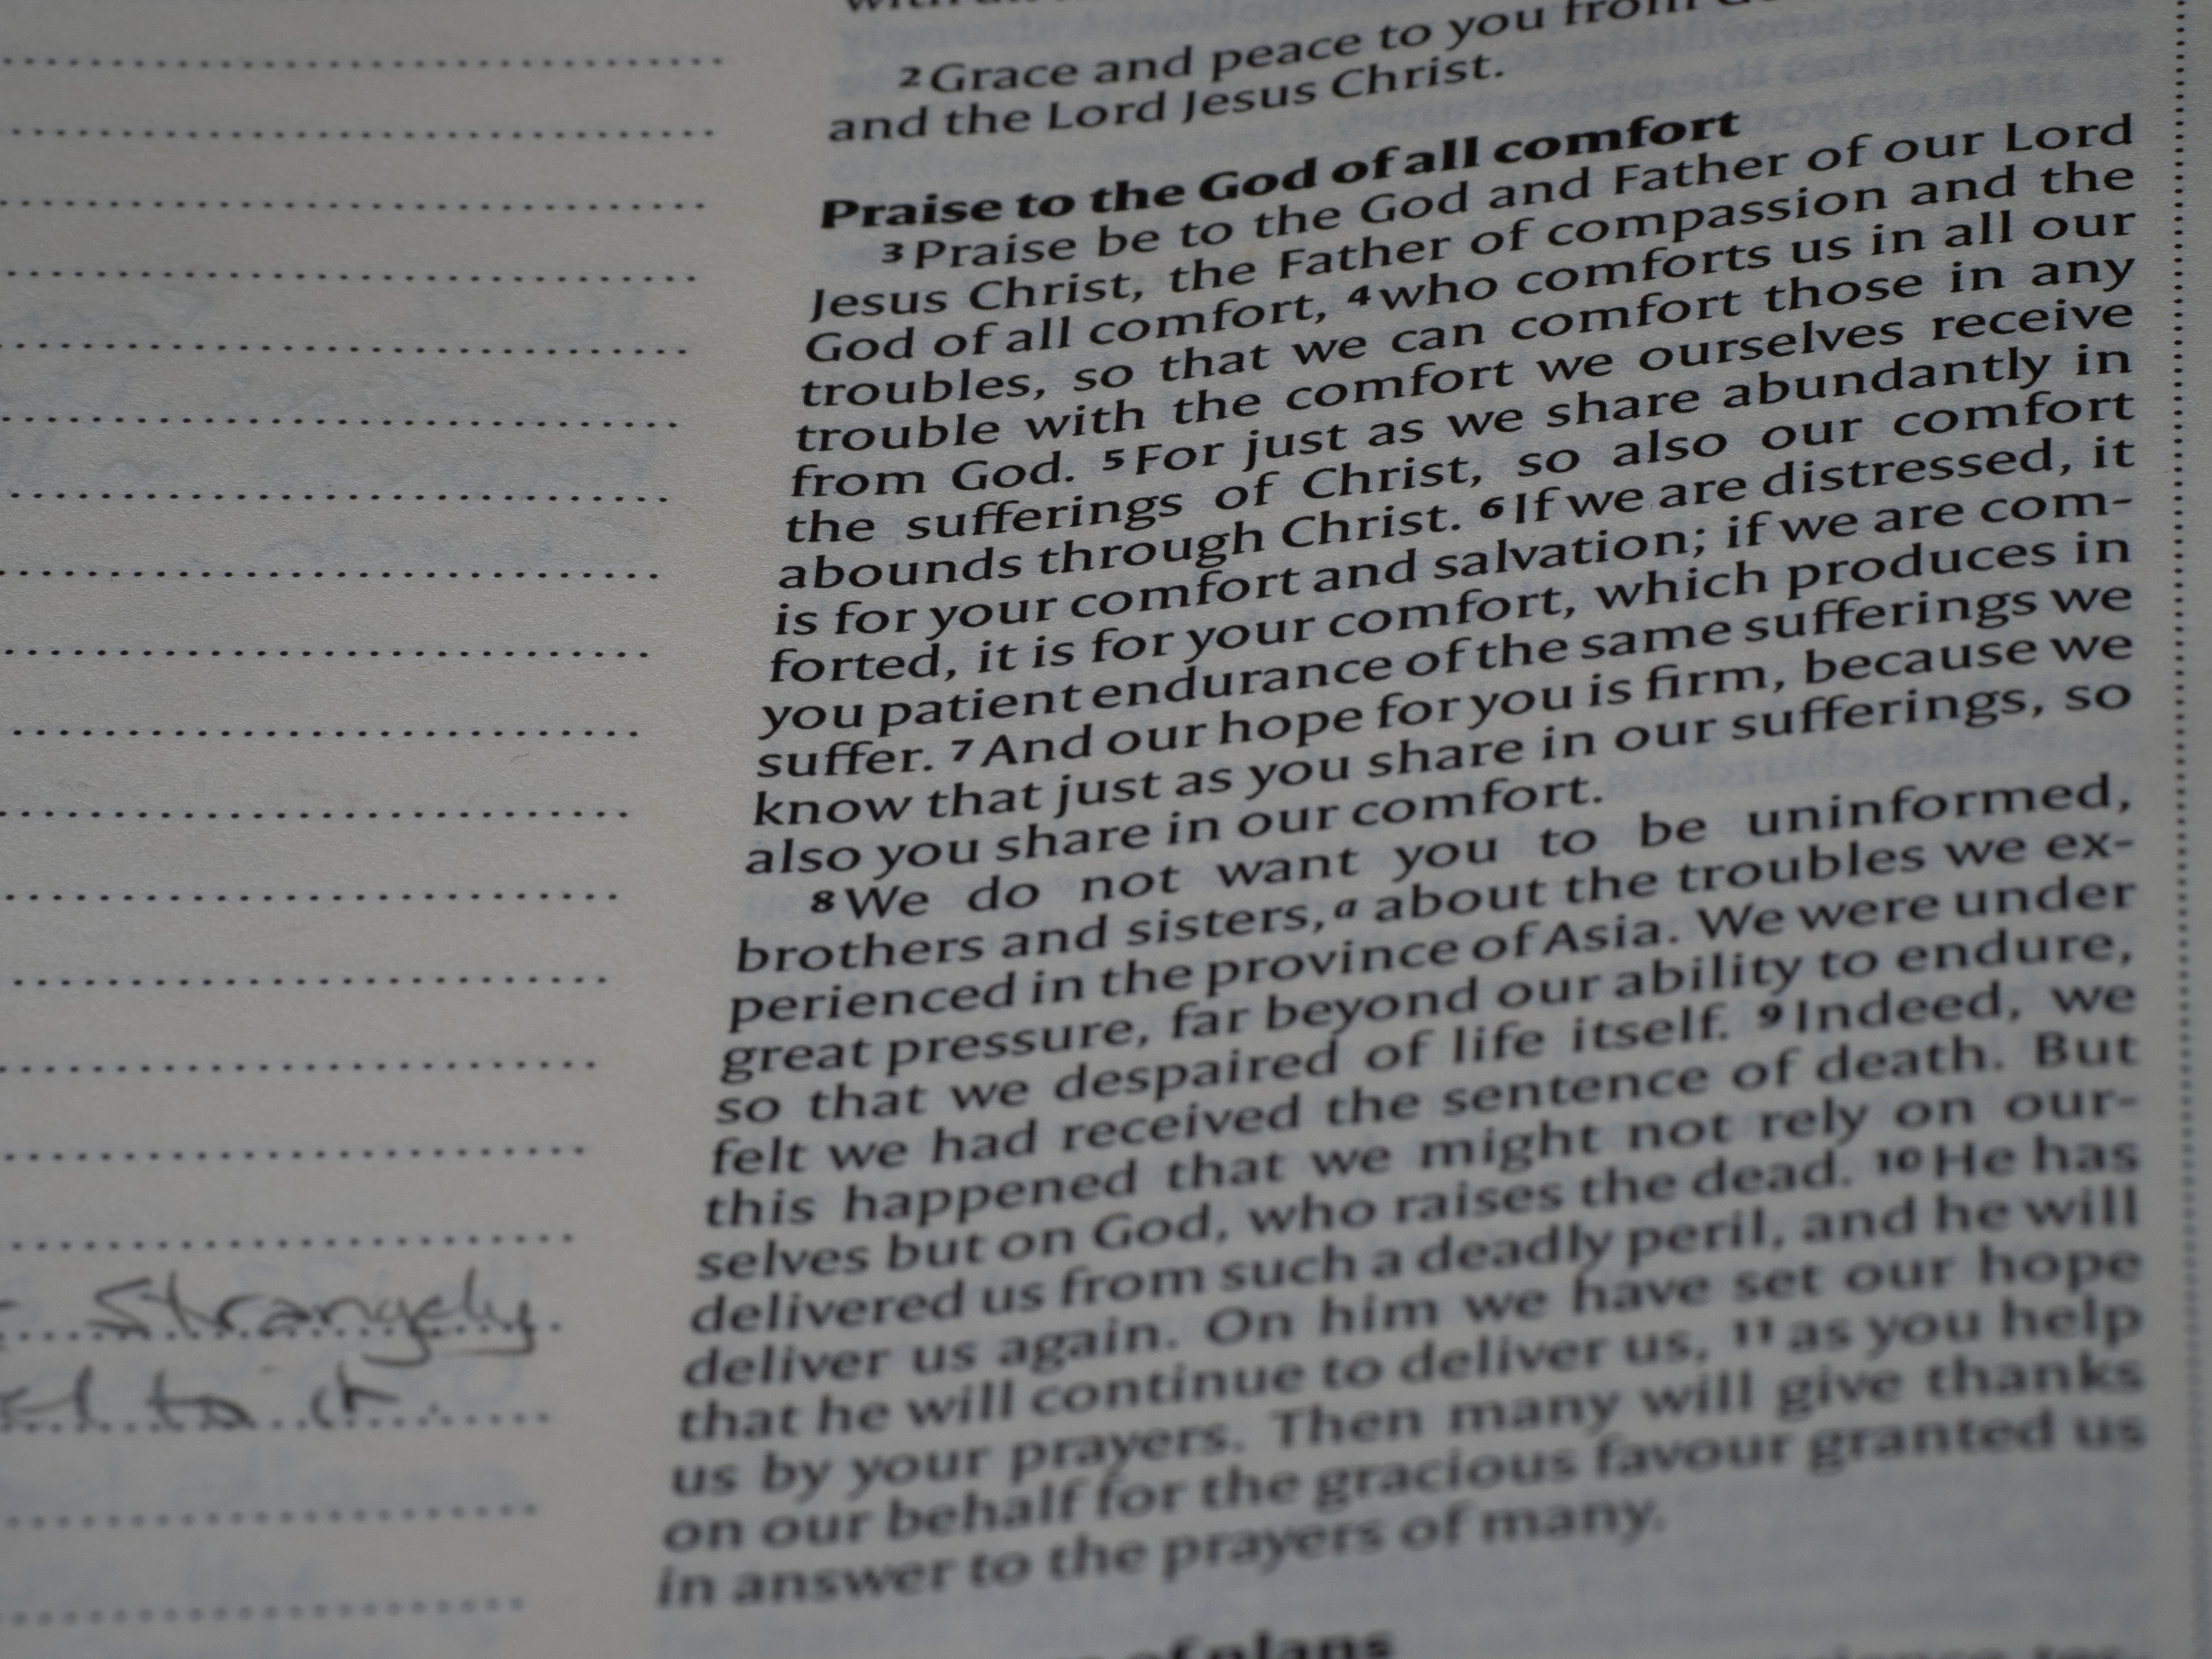 2 Grace and peace to you from
and the Lord Jesus Christ.
Praise to the God of all comfort
3 Praise be to the God and Father of our Lord
Jesus Christ, the Father of compassion and the
God of all comfort, 4 who comforts us in all our
troubles, so that we can comfort those in any
trouble with the comfort we ourselves receive
from God. 5 For just as we share abundantly in
the sufferings of Christ, so also our comfort
abounds through Christ. 6 If we are distressed, it
is for your comfort and salvation; if we are com-
forted, it is for your comfort, which produces in
you patient endurance of the same sufferings we
suffer. 7 And our hope for you is firm, because we
know that just as you share in our sufferings, so
also you share in our comfort.
8 We do not want you to be uninformed,
brothers and sisters,a about the troubles we ex-
perienced in the province of Asia. We were under
great pressure, far beyond our ability to endure,
so that we despaired of life itself. 9 Indeed, we
felt we had received the sentence of death. But
this happened that we might not rely on our-
selves but on God, who raises the dead. 10 He has
delivered us from such a deadly peril, and he will
deliver us again. On him we have set our hope
that he will continue to deliver us, 11 as you help
us by your prayers. Then many will give thanks
on our behalf for the gracious favour granted us
in answer to the prayers of many.
of plans
Strangely
to it.